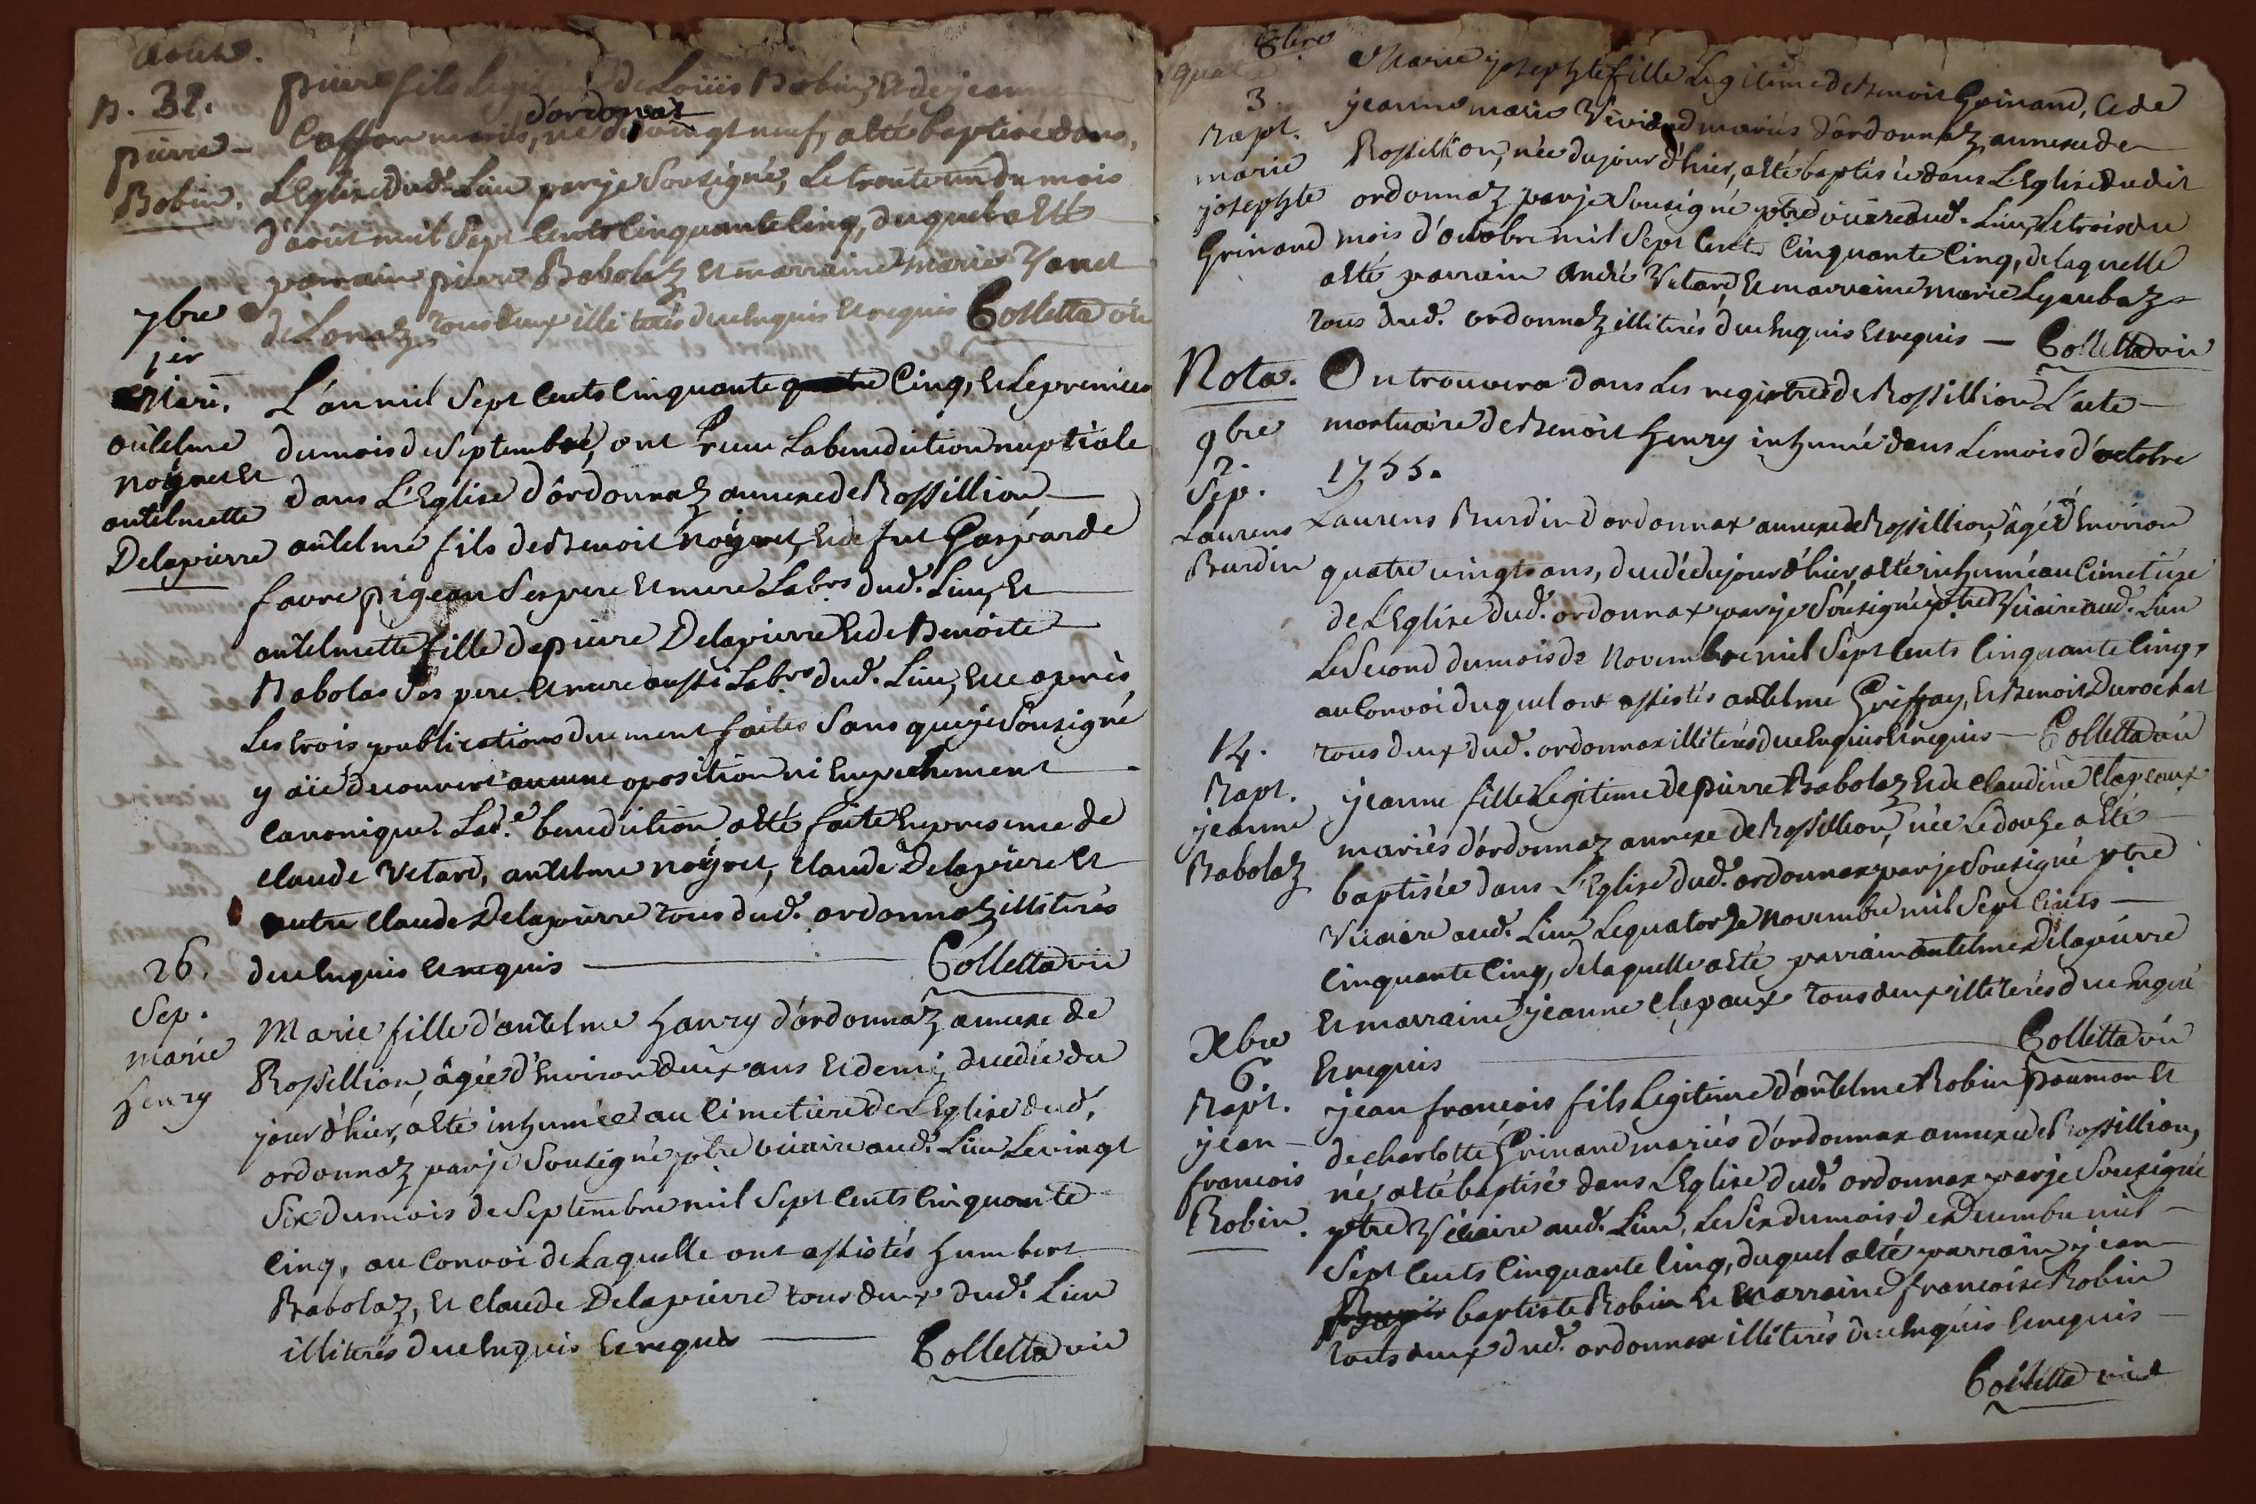 aoust.
B. 31.
pierre
Robin.
pierre fils legitime de Loüis Robin, et de jeanne
d'ordonnaz
mariés, né du vingt neuf, a été baptisé dans
L'Eglise dud. Lieu par je Sousigné, Le trente un du mois
d'août mil Sept Cents Cinquante Cinq, duquel a été
parrain pierre Babolaz et marraine marie
tous deux illiterés due Enquis et requis Colletta vic
7bre
1er
Mari.
antelme
noÿret Et
antelmette
Delapierre
L'an mil Sept Cents Cinquante quatre Cinq, et Le premier
du mois de Septembre, ont reçu La benediction nuptiale
dans L'Eglise d'ordonnaz annexe de Rossillion
antelme fils de Benoit noÿret, et de fut Gasparde
favre pigeau Ses pere et mere Labrs dud. Lieu, et
antelmette fille de pierre Delapierre et de Benoite
Babolas Ses pere et mere aussi Labrs dud. Lieu, et ce après
Les trois publications duement faites Sans que je Sousigné
y aïe decouvert aucune oposition ni Empechement
Canonique. Lad.e benediction a été faite En presence de
claude Vetard, antelme noÿret, claude Delapierre et
autre claude Delapierre tous dud. ordonnaz illiterés
due Enquis et requis — Colletta vic
26.
Sep.
marie
henry
Marie fille d'antelme henry d'ordonnaz annexe de
Rossillion, âgée d'Environ deux ans et demi, decedée du
jour d'hier, a été inhumée au Cimetière de L'Eglise dud.
ordonnaz par je Sousigné ptre vicaire aud. Lieu Le vingt
Six du mois de Septembre mil Sept Cents Cinquante
Cinq, au Convoi de Laquelle ont assistés humbert
Babolaz, et claude Delapierre tous deux dud. Lieu
illiterés due Enquis et requis — Colletta vic
8bre
3
Bapt.
marie
josephte
Grinand
Marie josephte fille Legitime de Benoit Grinand, et de
jeanne marie Vivi mariés d'ordonnaz, annexe de
Rossillion, née du jour d'hier, a été baptisée dans L'Eglise dudit
ordonnaz par je Sousigné ptre vicaire aud. Lieu, Le trois du
mois d'octobre mil Sept Cents Cinquante Cinq, de laquelle
a été parrain André Vetard, et marraine marie Lyaubaz
tous dud. ordonnaz illiterés due Enquis et requis — Colletta vic
Nota. On trouvera dans Les registres de Rossillion L'acte
mortuaire de Benoit henry inhumé dans Le mois d'octobre
1755.
9bre
2.
Sep.
Laurens
Burdin
Laurens Burdin d'ordonnax annexe de Rossillion, âgé d'Environ
quatre vingts ans, decedé du jour d'hier, a été inhumé au Cimetière
de L'Eglise dud. ordonnax par je Sousigné ptre Vicaire aud. Lieu
Le Second du mois de Novembre mil Sept Cents Cinquante Cinq,
au Convoi duquel ont assistés antelme Griffay, et Benoit Durochat
tous deux dud. ordonnax illiterés due Enquis et requis — Colletta vic
14.
Bapt.
jeanne
Babolaz
jeanne fille Legitime de pierre Babolaz et de claudine Clapeaux
mariés d'ordonnaz annexe de Rossillion, née Le douze a été
baptisée dans L'Eglise dud. ordonnax par je Sousigné ptre
Vicaire aud. Lieu Le quatorze Novembre mil Sept Cents
Cinquante Cinq, de laquelle a été parrain antelme Delapierre
et marraine jeanne Clapaux tous deux illiterés due Enquis
et requis — Colletta vic
Xbre
6.
Bapt.
jean
francois
Robin.
jean francois fils Legitime d'antelme Robin paumon et
de charlotte Grinand mariés d'ordonnax annexe de Rossillion,
né, a été baptisé dans L'Eglise dud. ordonnax par je Sousigné
ptre Vicaire aud. Lieu, Le Six du mois de Decembre mil
Sept Cents Cinquante Cinq, duquel a été parrain jean
baptiste Robin et marraine francoise Robin
tous deux dud. ordonnax illiterés due Enquis et requis
Colletta vic